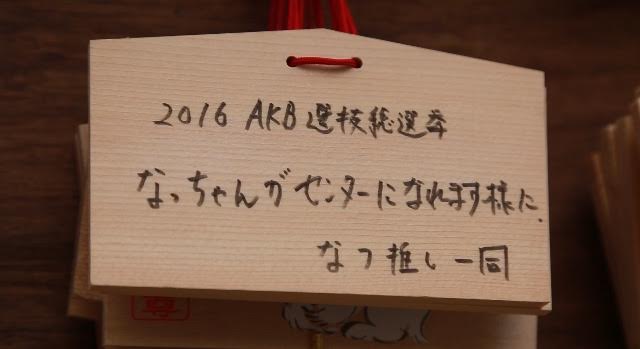 2016 AKB選抜総選挙
なっちゃんがセンターになれます様に.
なつ推し一同